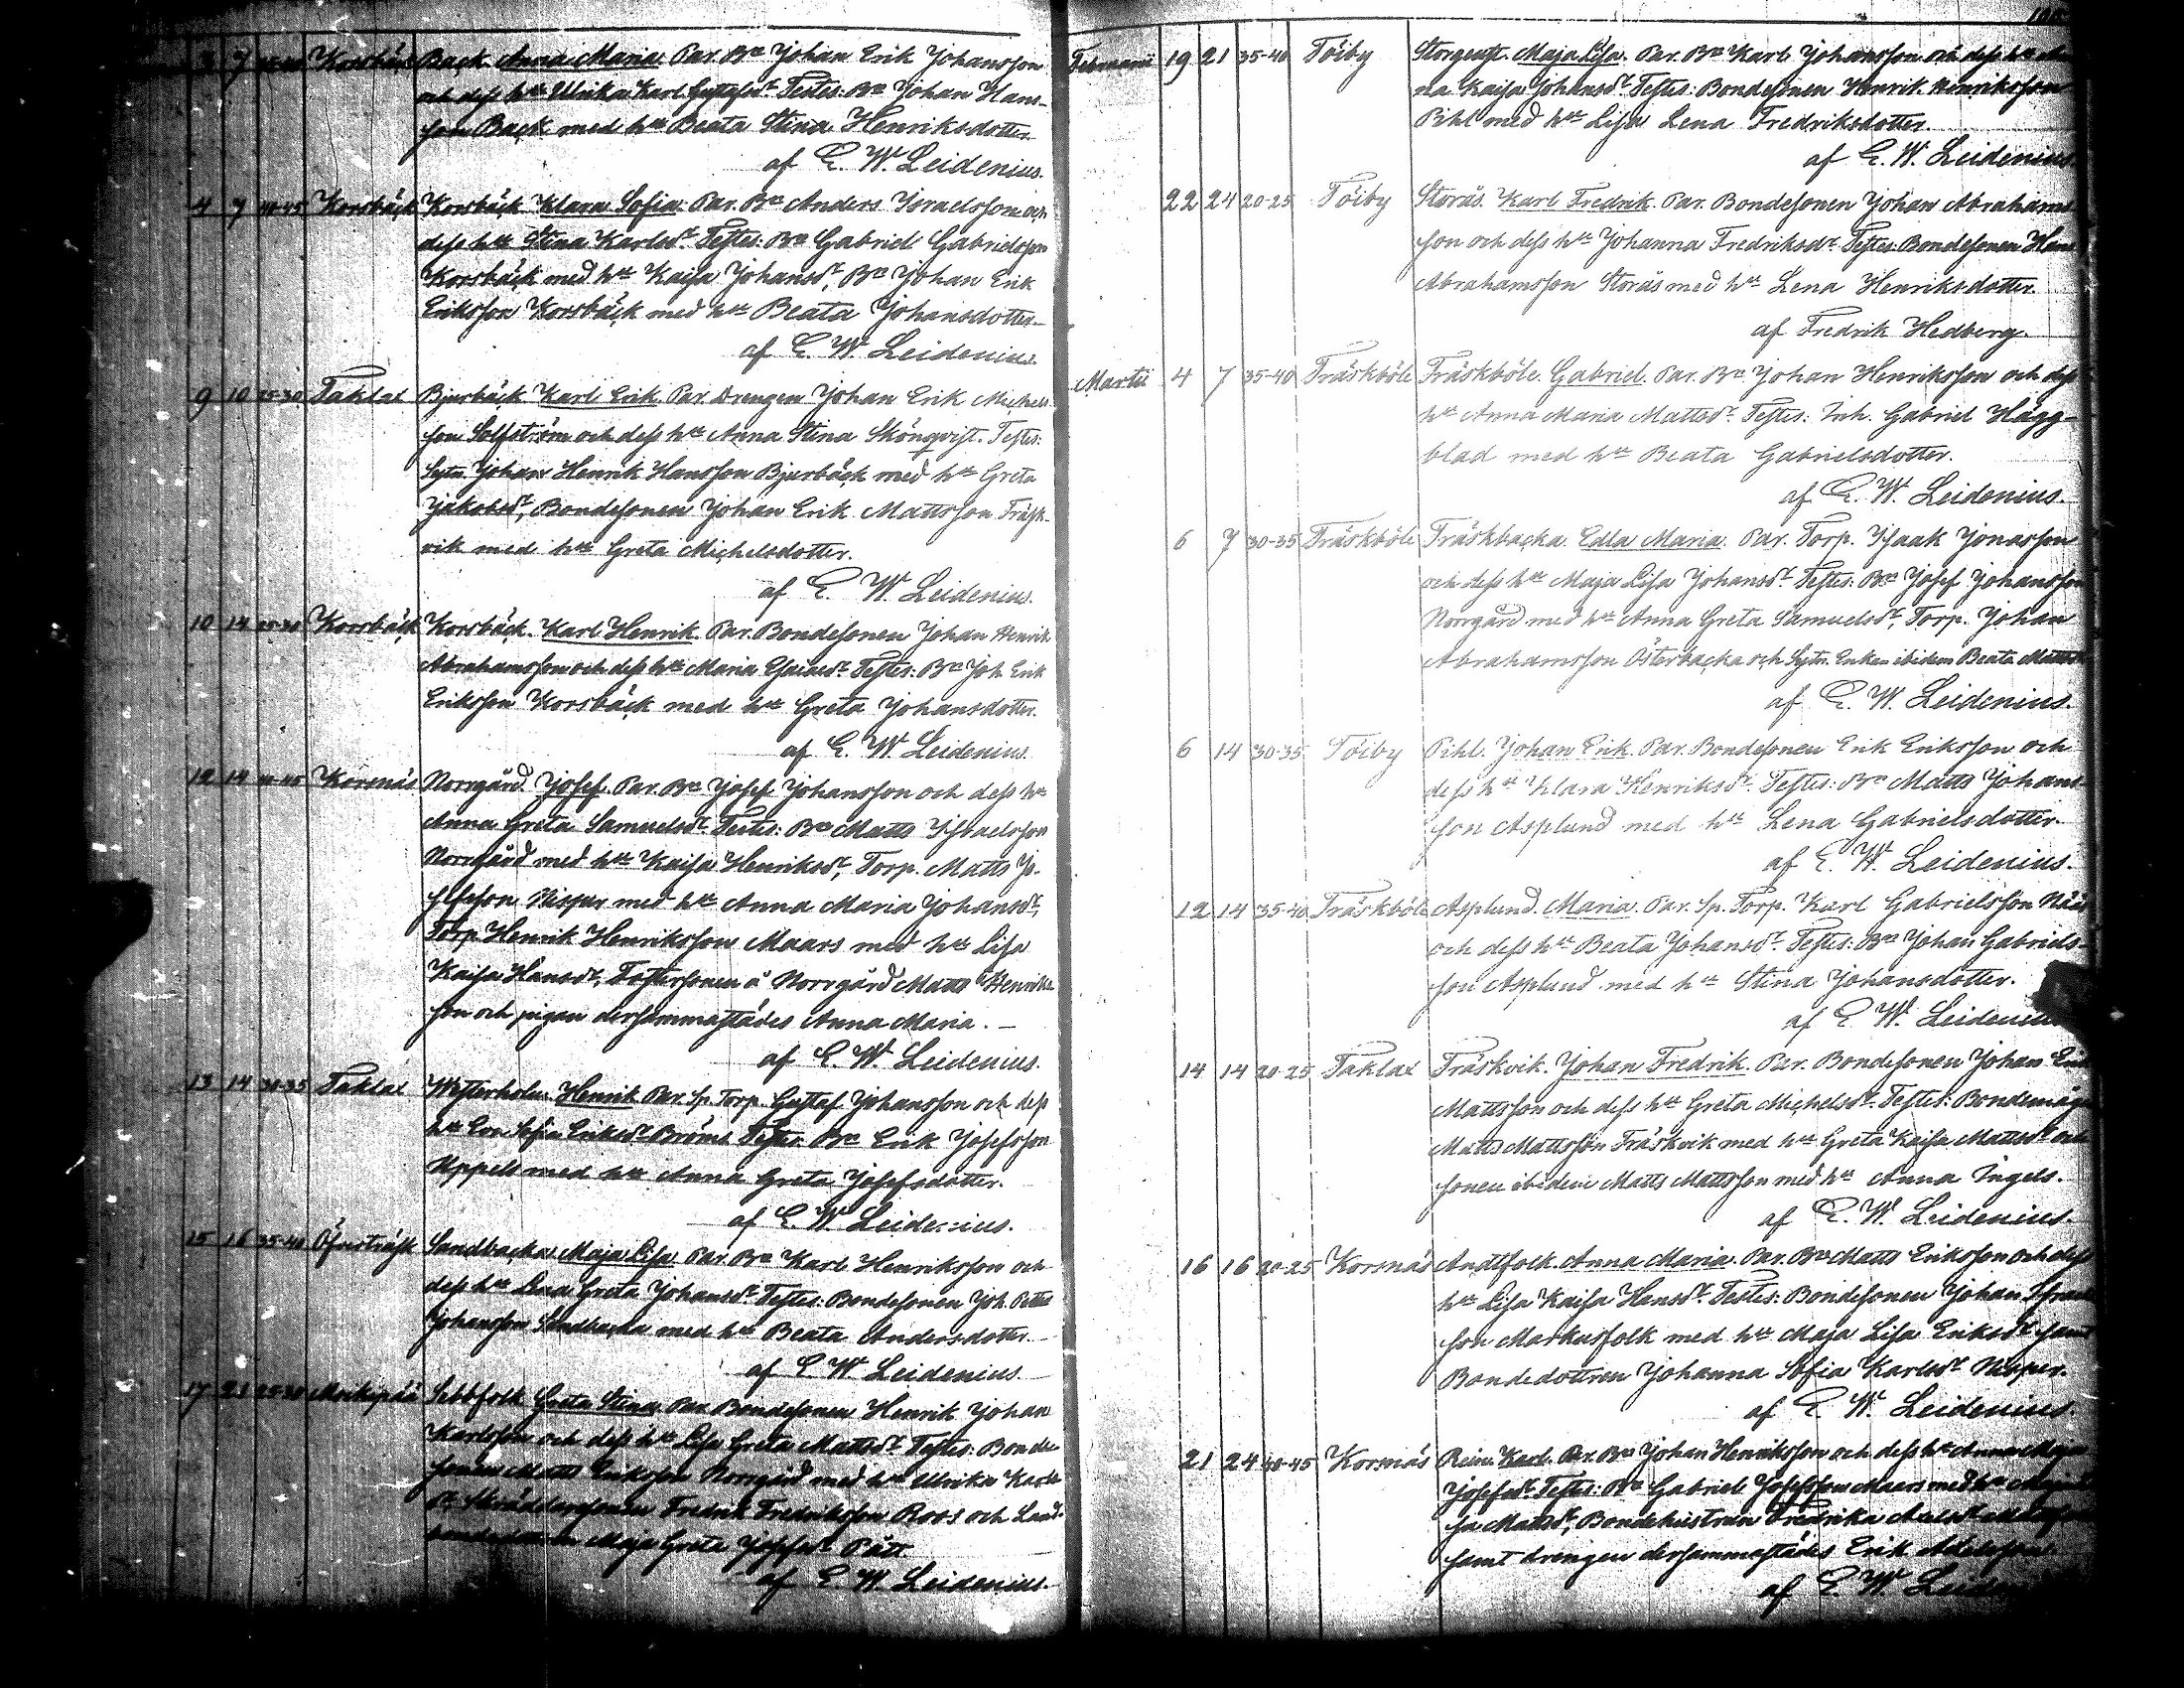 3 7 Korsbäck Back Anna Maria. Par. Bn Johan Erik Johansson
och dess hu Ulrika Karl Gustafsdr. Testes: Bn Johan Hans-
son Back med hu Beata Stina Henriksdotter.
af E. W. Leidenius.
4 7 40-45 Korsbäck Korsbäck Klara Sofia. Par. Bn Anders Israelsson och
dess hu Stina Karlsdr. Testes: Bn Gabriel Gabrielsson
Korsbäck med hu Kajsa Johansdr, Bn Johan Erik
Eriksson Korsbäck med hu Beata Johansdotter.
af E. W. Leidenius.
9 10 25-30 Taklax Bjurbäck Karl Erik. Par. Drengen Johan Erik Michels-
son Solfström och dess hu Anna Stina Skönqvist. Testes:
Sytn. Johan Henrik Hansson Bjurbäck med hu Greta
Jakobsdr, Bondesonen Johan Erik Mattsson Träsk-
vik med hu Greta Michelsdotter.
af E. W. Leidenius.
10 14 25-30 Korsbäck Korsbäck. Karl Henrik. Par. Bondesonen Johan Henrik
Abrahamsson och dess hu Maria Esaiasdr. Testes: Bn Joh. Erik
Eriksson Korsbäck med hu Greta Johansdotter.
af E. W. Leidenius.
12 14 40-45 Korsnäs Norrgård. Josef. Par. Bn Josef Johansson och dess hu
Anna Greta Samuelsdr. Testes: Bn Matts Israelsson
Norrgård med hu Kaisa Henriksdr, Torp. Matts Jo-
sefsson Nisper med hu Anna Maria Johansdr,
Torp. Henrik Henriksson Maars med hu Lisa
Kaisa Hansdr, Fostersonen å Norrgård Matts Henriks-
son och pigan dersammastädes Anna Maria.
af E. W. Leidenius.
13 14 30-35 Taklax Westerholm. Henrik. Par. Sp. Torp. Gustaf Johansson och dess
hu Eva Sofia Eriksdr Bröms. Testes: Bn Erik Josefsson
Uppels med hu Anna Greta Josefsdotter.
af E. W. Leidenius.
15 16 35-40 Öfverträsk Sandbacka Maja Lisa. Par. Bn Karl Henriksson och
dess hu Lena Greta Johansdr. Testes: Bondesonen Joh. Petter
Johansson Sandbacka med hu Beata Andersdotter.
af E. W. Leidenius.
17 21 25-30 Moikipää Sebbfolk Greta Stina. Par. Bondesonen Henrik Johan
Karlsson och dess hu Lisa Greta Mattsdr. Testes: Bonde-
sonen Matts Eriksson Norrgård med hu Ulrika Karls-
dr. Skräddarsonen Fredrik Fredriksson Roos och
Maja Greta Josefsdr Pått.
af E. W. Leidenius.
Februarii 19 21 35-40 Töiby Storgeust. Maja Lisa. Par. Bn Karl Johansson och dess hu An-
na Kaisa Johansdr. Testes: Bondesonen Henrik Henriksson
Pihl med hu Lisa Lena Fredriksdotter.
af E. W. Leidenius.
22 24 20-25 Töiby Storås. Karl Fredrik. Par. Bondesonen Johan Abrahams-
son och dess hu Johanna Fredriksdr. Testes: Bondesonen Hans
Abrahamsson Storås med hu Lena Henriksdotter.
af Fredrik Hedberg.
Martii 4 7 35-40 Träskböle Träskböle. Gabriel. Par. Bn Johan Henriksson och dess
hu Anna Maria Mattsdr. Testes: Inh. Gabriel Hägg-
blad med hu Beata Gabrielsdotter.
af E. W. Leidenius.
6 7 30-35 Träskböle Träskbacka. Edla Maria. Par. Torp. Isaak Jonasson
och dess hu Maja Lisa Johansdr. Testes: Bn Josef Johansson
Norrgård med hu Anna Greta Samuelsdr, Torp. Johan
Abrahamsson Österbacka och Sytn. Enkan ibidem Beata Mattsdr
af E. W. Leidenius.
6 14 30-35 Töiby Pihl. Johan Erik. Par. Bondesonen Erik Eriksson och
dess hu Klara Henriksdr. Testes: Bn Matts Johans-
son Asplund med hu Lena Gabrielsdotter.
af E. W. Leidenius.
12 14 35-40 Träskböle Asplund. Maria. Par. Sp. Torp. Karl Gabrielsson Näss
och dess hu Beata Johansdr. Testes: Bn Johan Gabriels-
son Asplund med hu Stina Johansdotter.
af E. W. Leidenius
14 14 20-25 Taklax Träskvik. Johan Fredrik. Par. Bondesonen Johan Erik
Mattsson och dess hu Greta Michelsdr. Testes: Bondemåg
Matts Mattsson Träskvik med hu Greta Kaisa Mattsdr och
sonen ibidem Matts Mattsson med hu Anna Ingels.
af E. W. Leidenius.
16 16 20-25 Korsnäs Andtfolk. Anna Maria. Par. Bn Matts Eriksson och dess
hu Lisa Kaisa Hansdr. Testes: Bondesonen Johan Israels-
son Markusfolk med hu Maja Lisa Eriksdr samt
Bondedottren Johanna Sofia Karlsdr Nisper.
af E. W. Leidenius.
21 24 40-45 Korsnäs Rein. Karl. Par. Bn Johan Henriksson och dess hu Anna Maja
Josefsdr. Testes: Bn Gabriel Josefsson Maars med hu
sa Mattsdr, Bondehustrun Fredrika
samt drengen dersammastädes Erik
af E. W. Leidenius